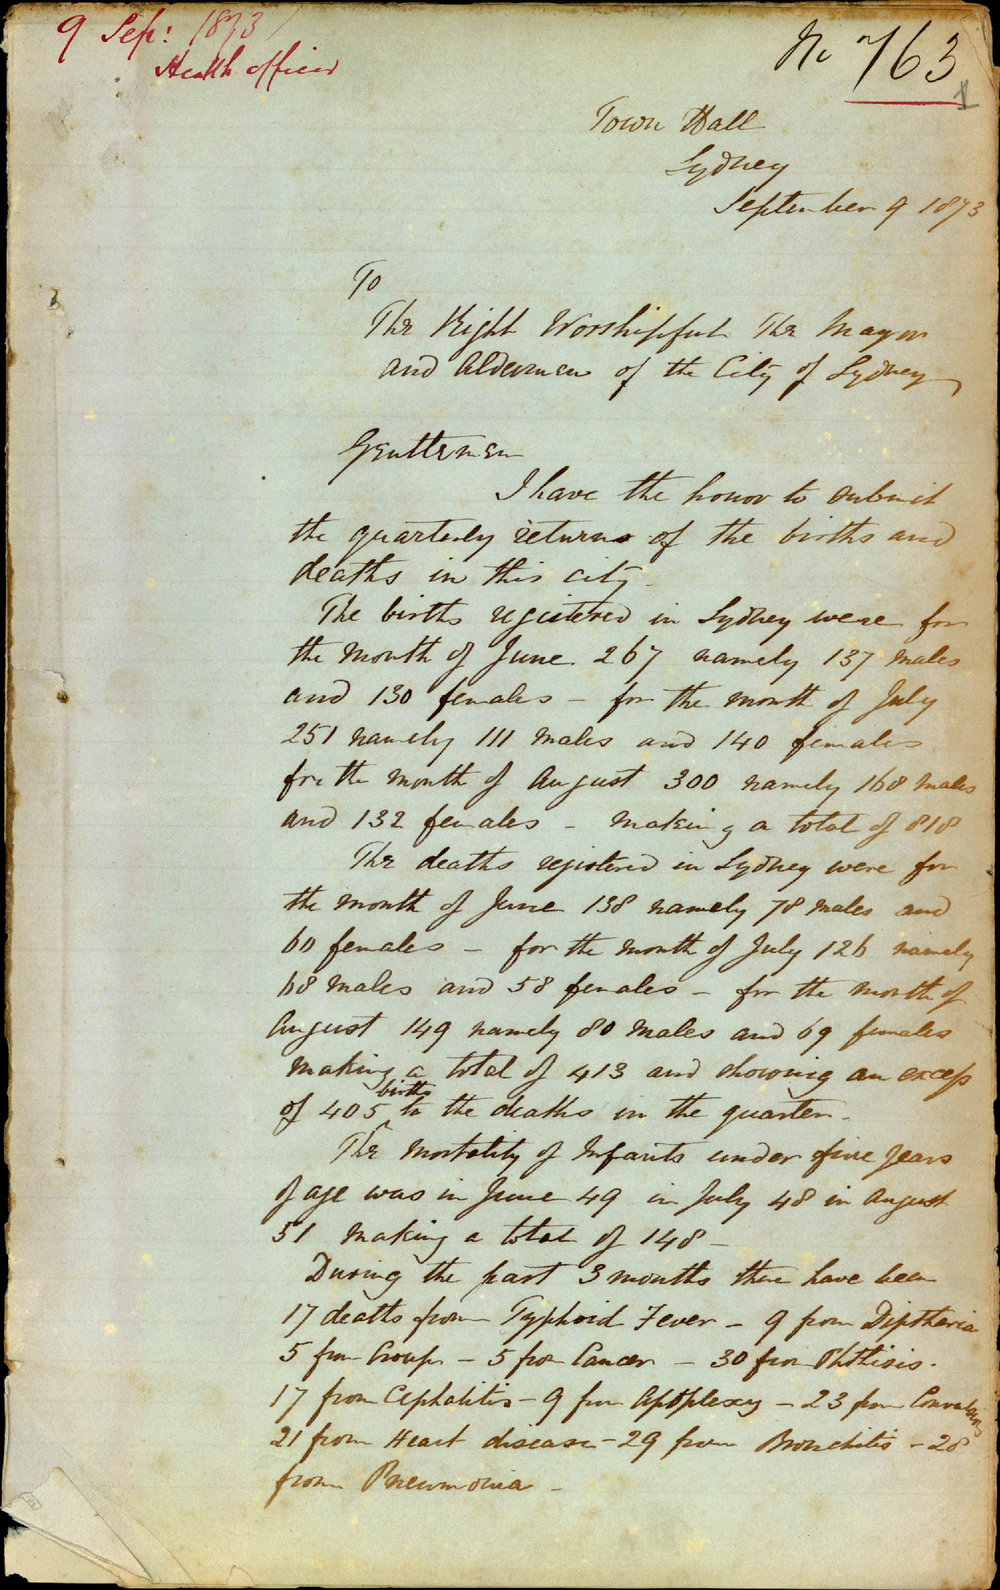 9 Sep: 1873
Health officer
No 763
1
Town Hall
Sydney
September 9 1873
To
The Right Worshipful The Mayor
and Aldermen of the City of Sydney
Gentlemen
I have the honor to submit
the quarterly returns of the births and
deaths in this city.
The births registered in Sydney were for
the month of June 267 namely 137 males
and 130 females - for the month of July
251 namely 111 males and 140 females
for the month of August 300 namely 168 males
and 132 females - making a total of 818
The deaths registered in Sydney were for
the month of June 138 namely 78 males and
60 females - for the month of July 126 namely
68 males and 58 females - for the month of
August 149 namely 80 males and 69 females
making a total of 413 and showing an excess
births
of 405 ^ to the deaths in the quarter -
The mortality of Infants under five years
of age was in June 49 in July 48 in August
51 making a total of 148 -
During the past 3 months there have been
17 deaths from Typhoid Fever - 9 from Diptheria
5 from Croup - 5 from Cancer - 30 from Phthisis -
17 from Cephalitis - 9 from Apoplexy - 23 from Convulsions
21 from Heart disease - 29 from Bronchitis - 28
from Pneumonia -